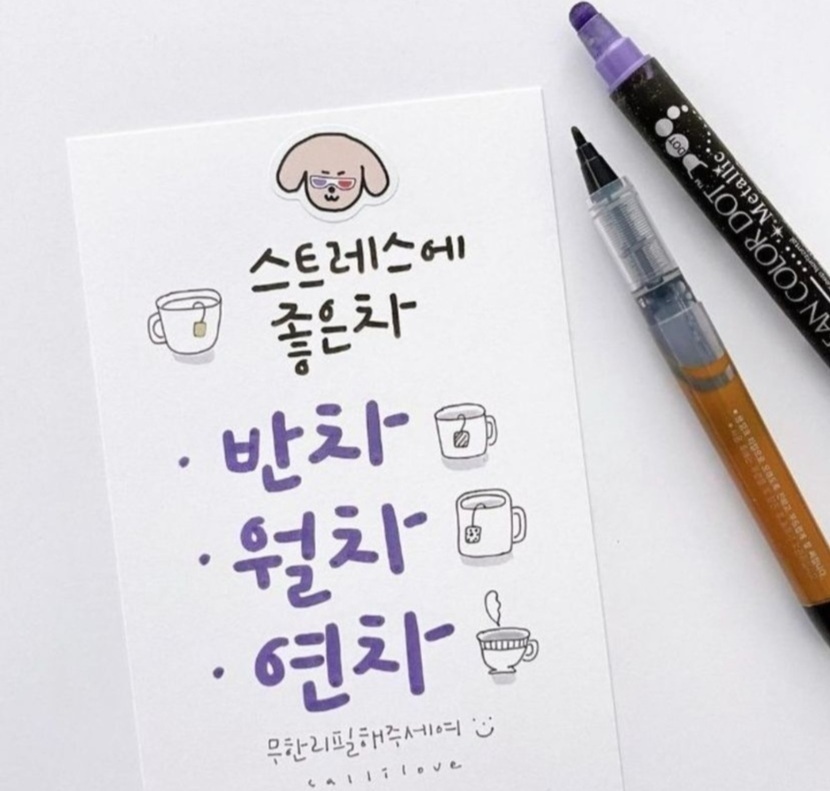 스트레스에
좋은차
· 반차
· 월차
· 연차
무한리필해주세여
callilove
DOT
COLOR DOT™
Metallic